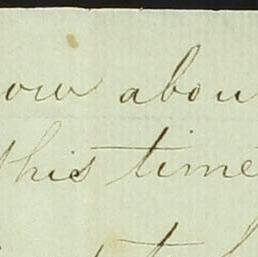 ow abou
this time